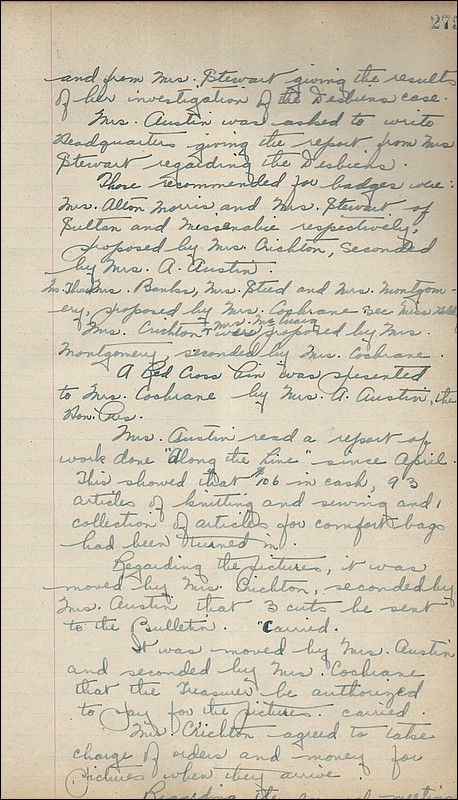 275
and from Mrs. Stewart giving the results
of her investigation of the Desbiens case.
Mrs. Austin was asked to write
Headquarters giving the report from Mrs
Stewart regarding the Desbiens.
Those recommended for badges were:
Mrs. Alton Morris and Mrs. Stewart of
Sultan and Missenabie respectively,
proposed by Mrs. Crichton, seconded
by Mrs. A. Austin.
Mrs. Banks, Mrs. Steed and Mrs. Montgom-
ery, proposed by Mrs. Cochrane Sec Miss
& Mrs.
Mrs. Crichton were proposed by Mrs.
Montgomery, seconded by Mrs. Cochrane.
A Red Cross Pin was presented
to Mrs. Cochrane by Mrs. A. Austin, the
Hon. Pres.
Mrs. Austin read a report of
work done "Along the Line" since April.
This showed that $106 in cash, 93
articles of knitting and sewing and 1
collection of articles for comfort bags
had been turned in.
Regarding the pictures, it was
moved by Mrs. Crichton, seconded by
Mrs. Austin that 3 cuts be sent
to the Bulletin. Carried.
It was moved by Mrs. Austin
and seconded by Mrs. Cochrane
that the Treasurer be authorized
to pay for the pictures. carried.
Mrs Crichton agreed to take
charge of orders and money for
pictures when they arrive.
Regarding the annual meeting